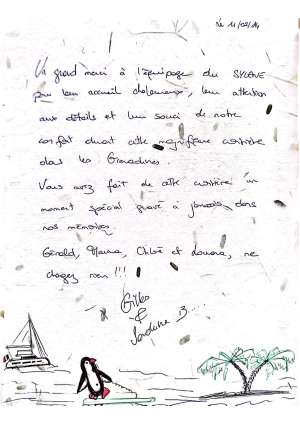 Le 11/02/14
Un grand merci à l'équipage du SYLENE
pour leur accueil chaleureux, leur attention
aux détails et leur souci de notre
confort durant cette magnifique croisière
dans les Grenadines.
Vous avez fait de cette croisière un
moment spécial gravé à jamais dans
nos mémoires.
Gérald, Chloé et ne
changez rien !!!
Gilles
&
B....